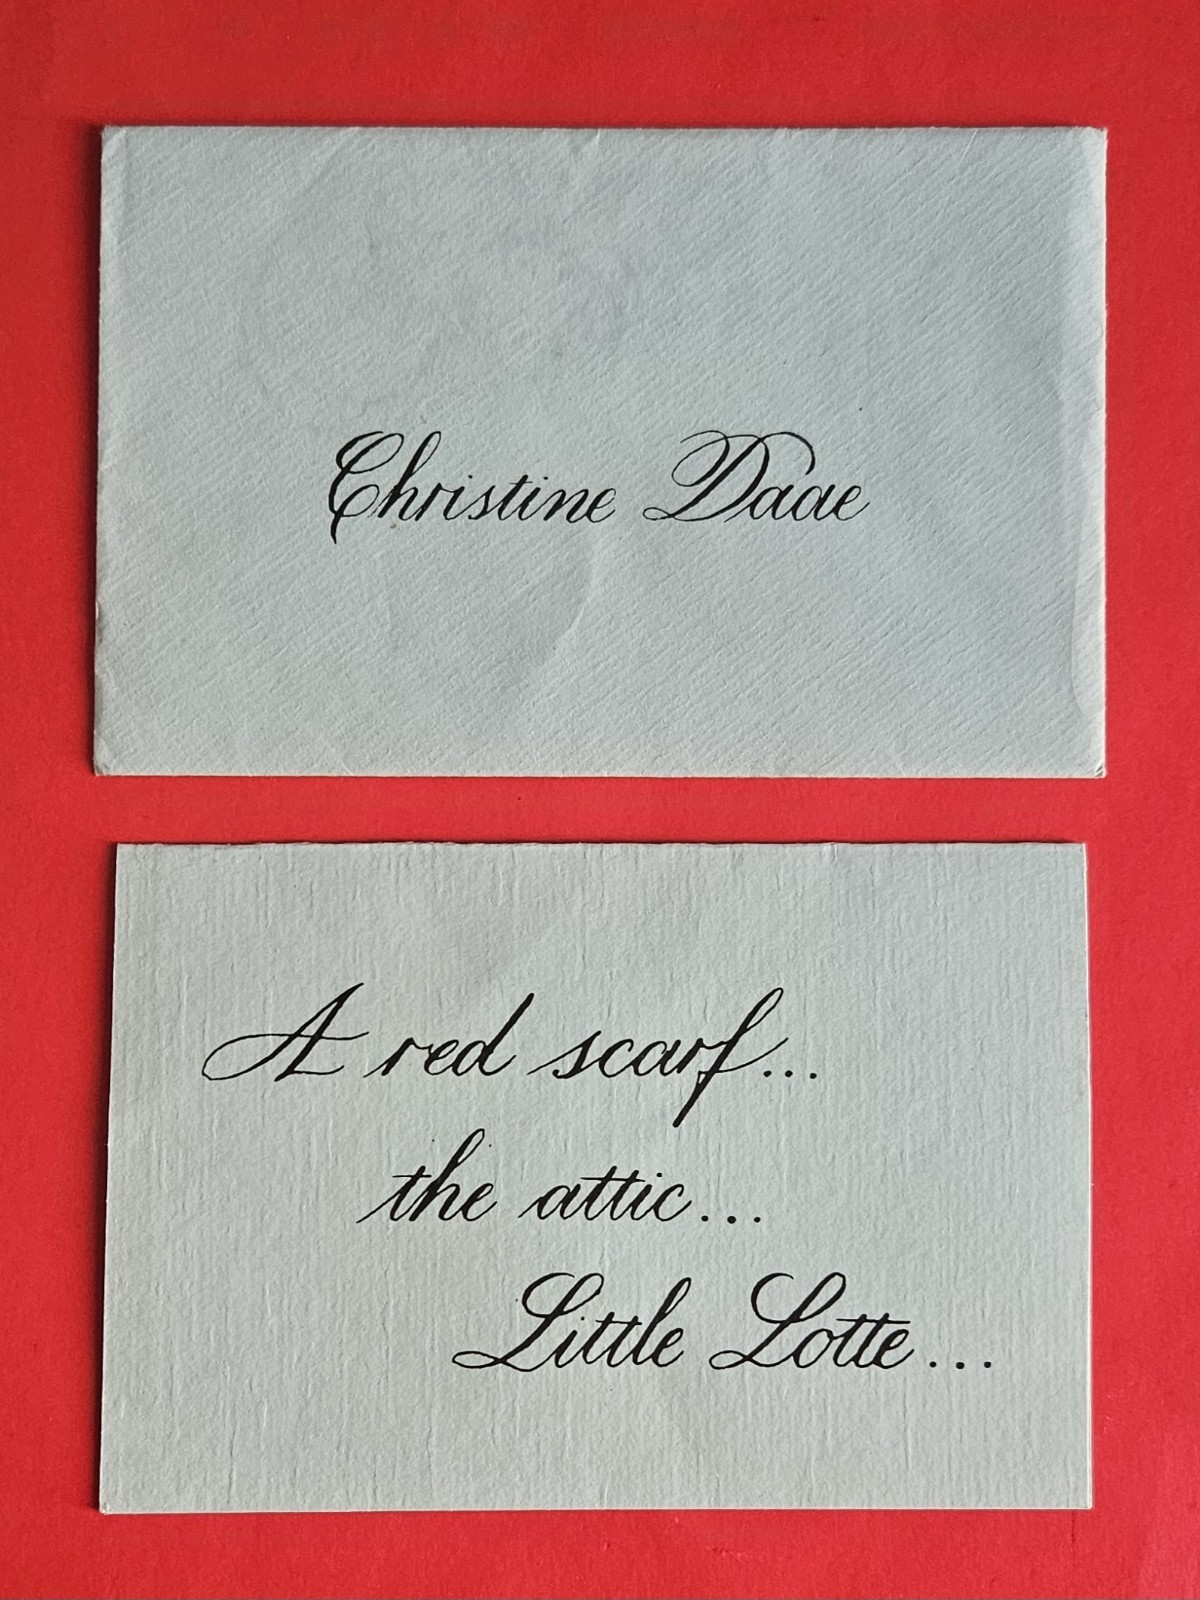 Christine Daae
A red scarf...
the attic...
Little Lotte...